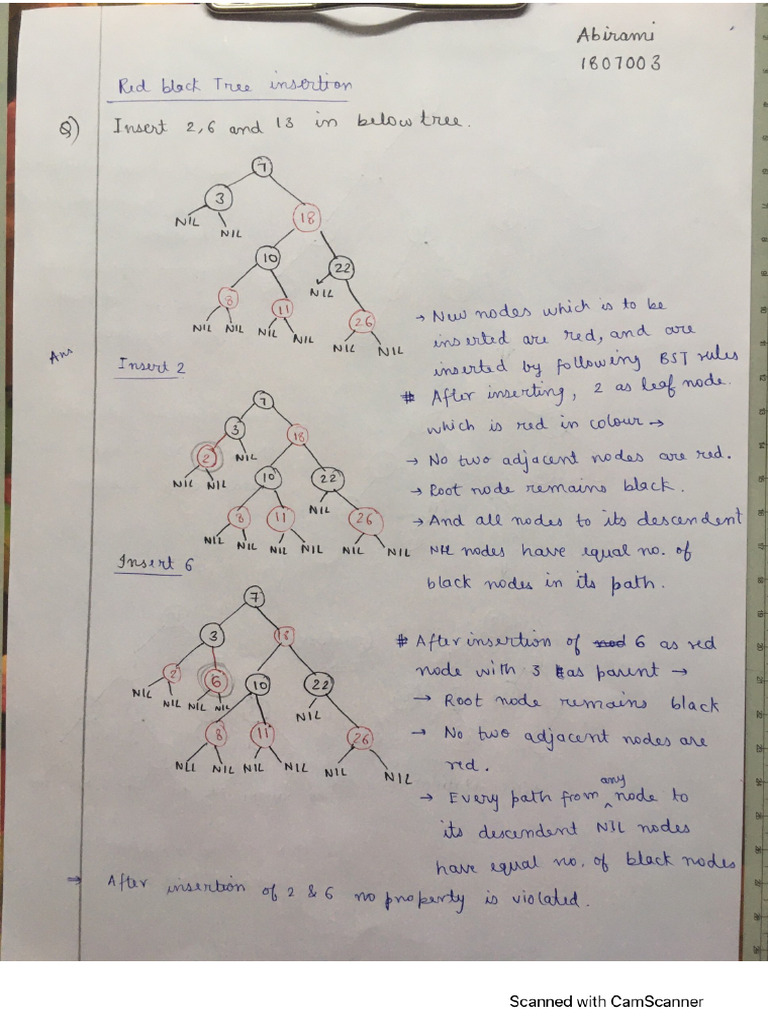 Abirami
1807003
Red black Tree insertion
Q) Insert 2, 6 and 13 in below tree.
7
3
18
NIL NIL
10
22
NIL
8
11
26
NIL NIL NIL NIL
NIL NIL
→ New nodes which is to be
inserted are red, and are
inserted by following BST rules
Ans
Insert 2
# After inserting, 2 as leaf node.
which is red in colour →
7
3
18
2
NIL
10
22
NIL NIL
NIL
8
11
26
NIL NIL NIL NIL NIL NIL
→ No two adjacent nodes are red.
→ Root node remains black.
→ And all nodes to its descendent
NIL nodes have equal no. of
black nodes in its path.
Insert 6
7
3
18
2
6
10
22
NIL NIL NIL NIL
NIL
8
11
26
NLL NIL NIL NIL NIL
NIL
# After insertion of 6 as red
node with 3 as parent →
→ Root node remains black
→ No two adjacent nodes are
red.
→ Every path from any node to
its descendent NIL nodes
have equal no. of black nodes
⇒ After insertion of 2 & 6 no property is violated.
Scanned with CamScanner